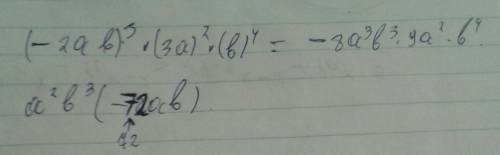 (-2ab)³·(3a)²·(b)⁴ = -8a³b³·9a²·b⁴
a²b³(-72ab).
72